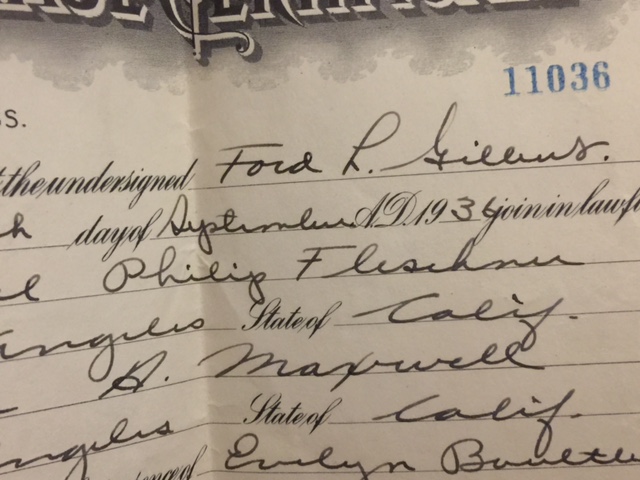 11036
SS.
the undersigned Ford L. Gilleus.
day of September A.D. 1936 join in lawf
Philip Fleschner
Angeles State of Calif.
A. Maxwell
Angeles State of Calif.
ence of Evelyn